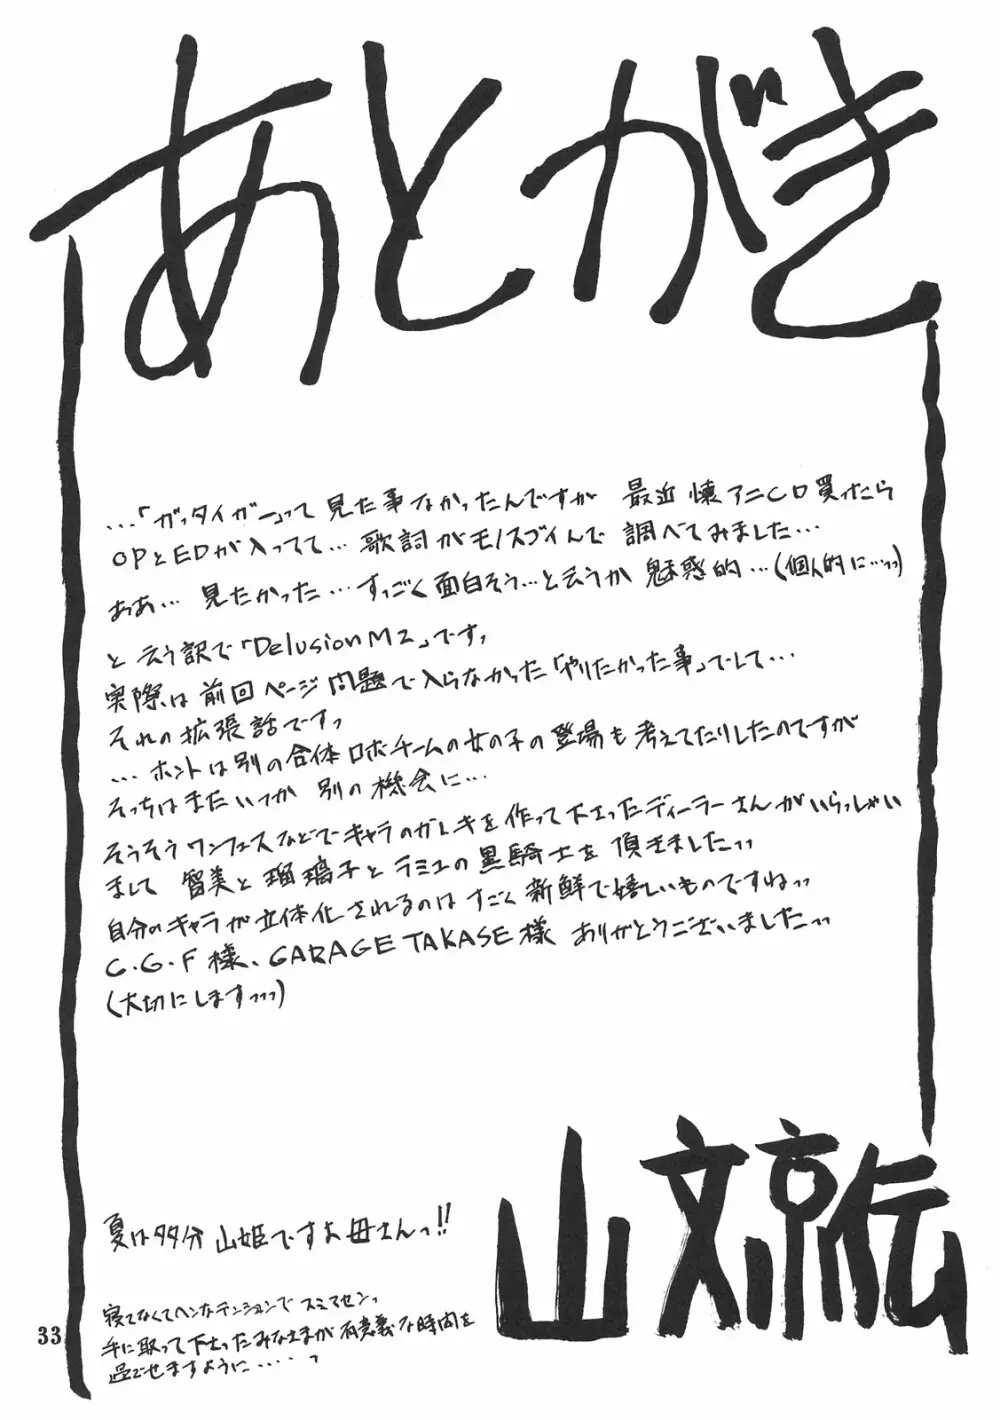 あとがき
…「ガッタイガー」って見た事なかったんですが 最近 懐アニCD買ったら
OPとEDが入ってて… 歌詞がモノスゴイんで 調べてみました…
ああ… 見たかった…すっごく面白そう…と云うか 魅惑的…(個人的に…ッッ)
と云う訳で「Delusion M2」ですッ
実際は前回ページ問題で入らなかった「やりたかった事」でして…
それの拡張話ですッ
…ホントは別の合体ロボチームの女の子の登場も考えてたりしたのですが
そっちはまたいつか 別の機会に…
そうそうワンフェスなどでキャラのガレキを作って下さったディーラーさんがいらっしゃい
まして 智美と瑠璃子とラミュの黒騎士を頂きましたッッ
自分のキャラが立体化されるのはすごく新鮮で嬉しいものですねッッ
C.G.F様、GARAGE TAKASE様 ありがとうございましたッッ
(大切にしますッッッ)
夏は多分山姫ですよ母さんっ!!
山文京伝
寝てなくてヘンなテンションでスミマセンッ
手に取って下さったみなさまが有意義な時間を
過ごせますように・・・・ッ
33